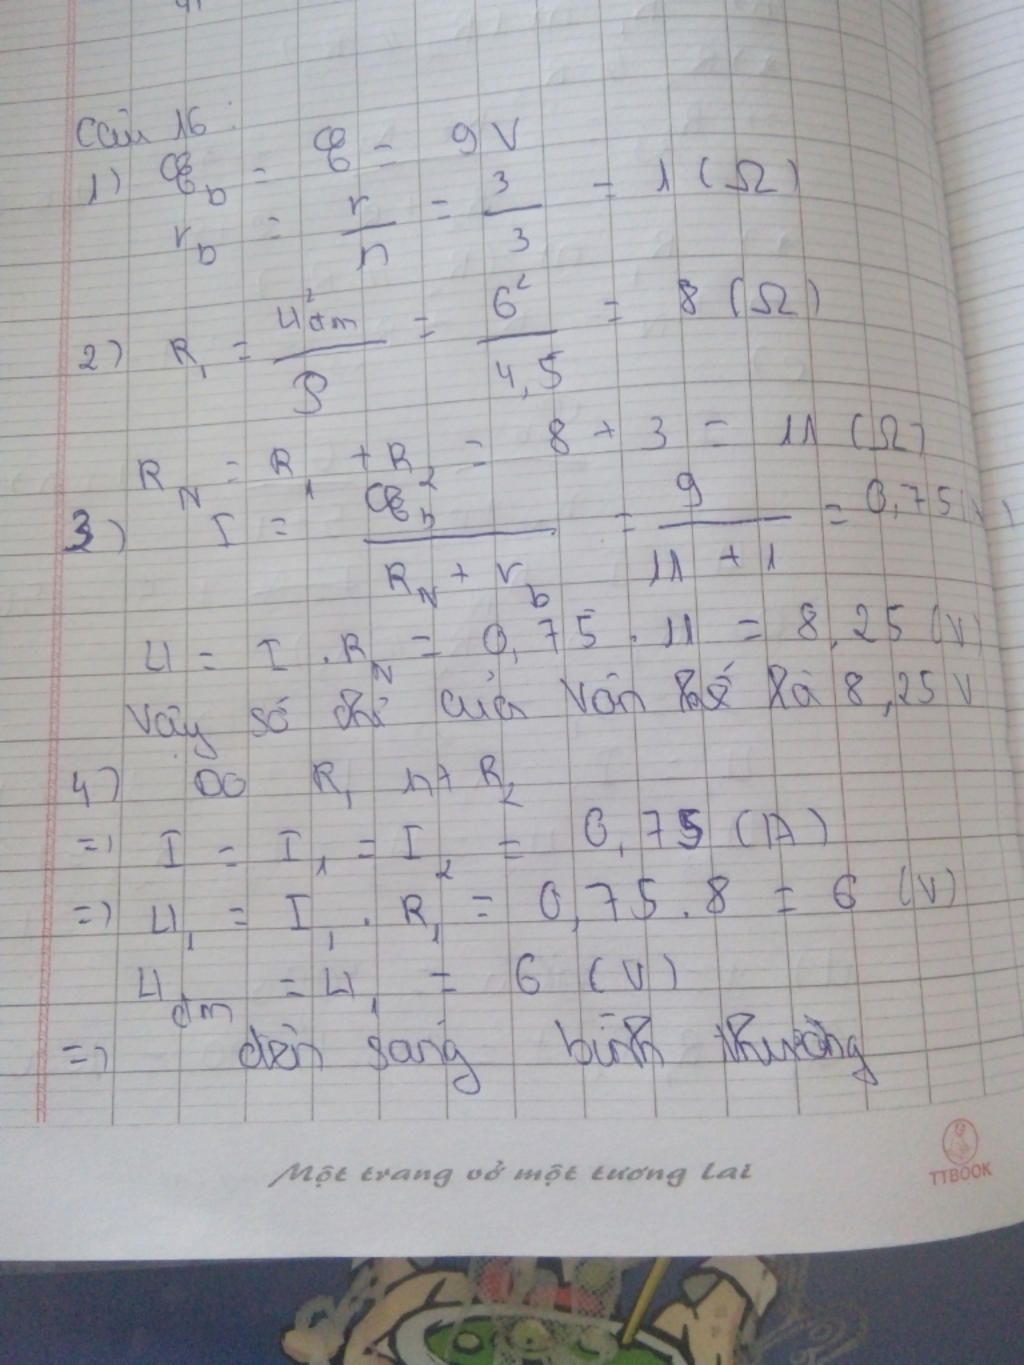 Câu 16:
1) ℰb = ℰ = 9V
rb = r/n = 3/3 = 1 (Ω)
2) R1 = U²đm/P = 6²/4,5 = 8 (Ω)
RN = R1 + R2 = 8 + 3 = 11 (Ω)
3) I = ℰb/(RN + rb) = 9/(11 + 1) = 0,75
U = I . RN = 0,75 . 11 = 8,25 (V)
Vậy số chỉ của Vôn kế là 8,25 V
4) DO R1 nt R2
=> I = I1 = I2 = 0,75 (A)
=> U1 = I1 . R1 = 0,75 . 8 = 6 (V)
Uđm = U1 = 6 (V)
=> đèn sáng bình thường
Một trang vở một tương lai
TTBOOK